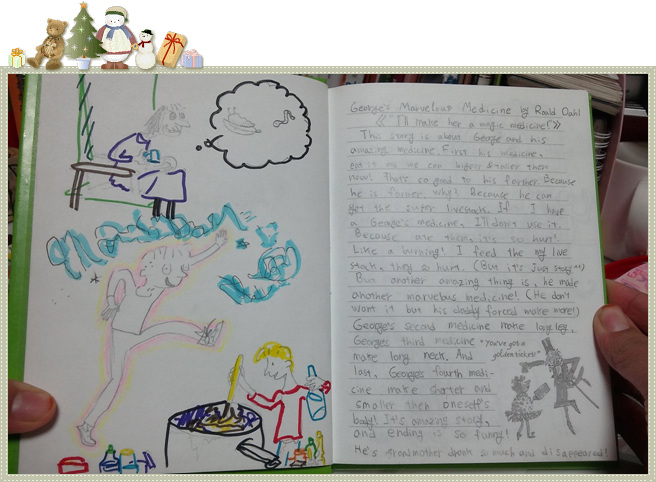 George's Marvelous Medicine by Roald Dahl
《"I'll make her a magic medicine!"》
This story is about George and his
amazing medicine. First his medicine,
eat it me we can bigger & taller then
now! Thats so good to his farther. Because
he is farmer. why? Because he can
get the super livestock. If I have
a George's medicine, I'll don't use it.
Because ate then, it's so hurt!
Like a burning! I feed the my live
stock, they so hurt. (But it's just story^^)
But another amazing thing is, he made
another marvelous medicine! (He don't
want it but his daddy forced make more!)
George's second medicine make long leg,
George's third medicine
make long neck. And
last, George's fourth medi-
cine make shorter and
smaller then oneself's
body! It's amazing story,
and ending is so funny!
He's grandmother drank so much and disappeared!
"You've got a
golden ticket!"